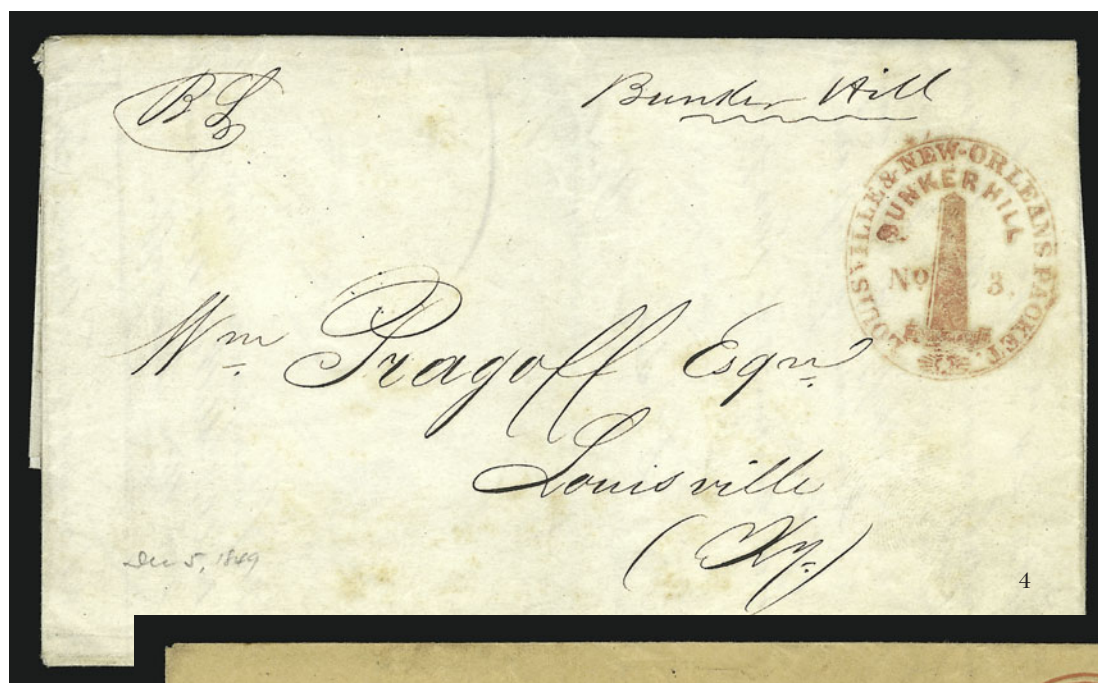 BL
Bunker Hill
LOUISVILLE & NEW-ORLEANS PACKET.
BUNKER HILL
No 3.
Wm Pragoff Esqr
Louisville
(Ky.)
Dec 5, 1849
4